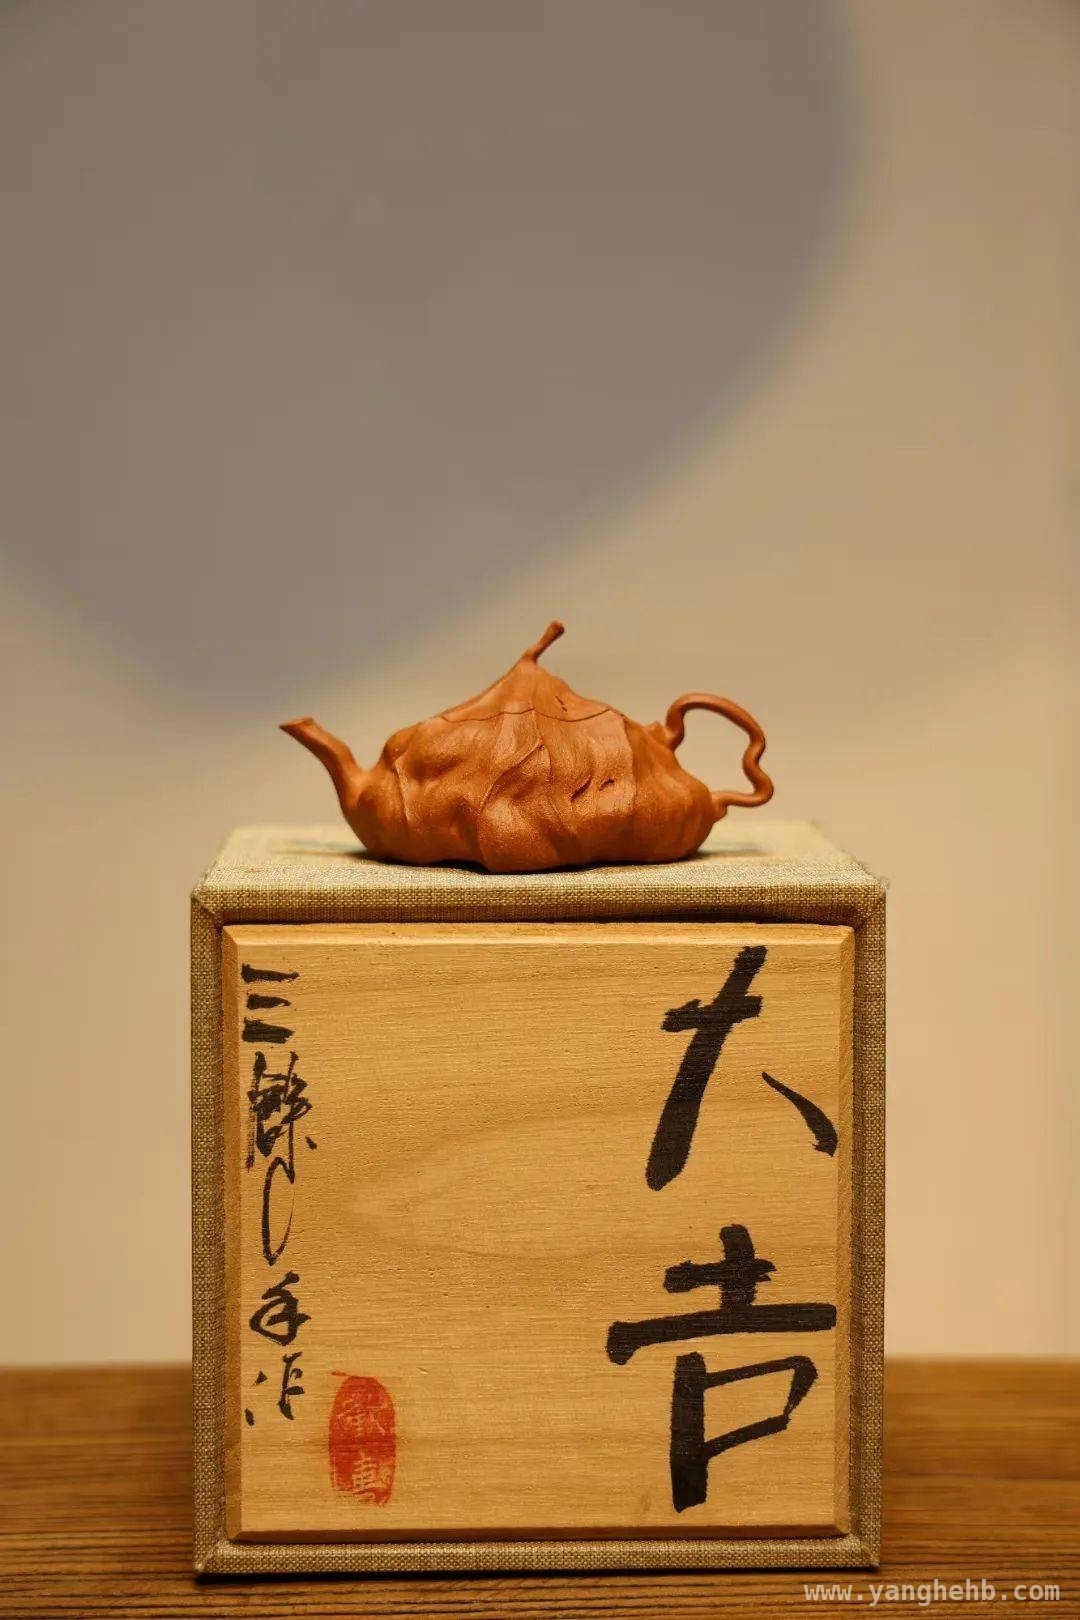 大吉
三餘
手作
www.yanghehb.com